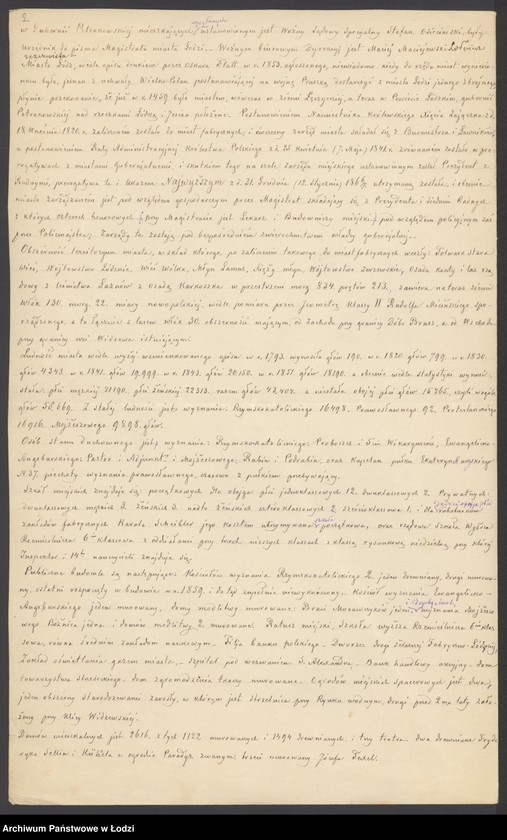 2.
w Gubernii Petrokowskiej mieszkających, ustanowionym jest Woźny Sądowy Specyalny Stefan
do pisma Magistratu miasta Łodzi. Woźnym biurowym Dyrekcyi jest Maciej Maciejewski
Miasto Łódź, wedle opisu onemu przez Oskara Flatt w r. 1853 ogłoszonego, niewiadomo kiedy do rzędu miast wyniesio-
nem było, jednak z uchwały Wielko-Polan postanawiającej na wojnę Pruską, dostarczyć z miasta Łodzi jednego zbrojnego
pokazuje się, że już w r. 1459 było miastem, wówczas w Ziemi Łęczyckiej, a teraz w Powiecie Łódzkim, gubernii
Petrokowskiej nad rzeczkami Łódką i Jasień położone. Postanowieniem Namiestnika Królewskiego Księcia Zajączka z d.
18 Września 1820 r. zaliczonem zostało do miast fabrycznych, i ówczesny zarząd miasta składał się z Burmistrza i Ławników,
a postanowieniem Rady Administracyjnej Królestwa Polskiego z d. 25 Kwietnia (7 Maja) 1841 r. zrównanem zostało w pre-
rogatywach z miastami Gubernialnemi, i skutkiem tego na czele zarządu miejskiego ustanowionym został Prezydent z
Radnymi, prerogatywa ta i Ukazem Najwyższym z d. 31 Grudnia (12 Stycznia) utrzymaną została, i obecnie
miasto zarządzanem jest pod względem gospodarczym przez Magistrat składający się z Prezydenta i siedmiu Radnych
z których czterech honorowych, przy Magistracie jest Lekarz i Budowniczy miejski, pod względem policyjnym zaś
przez Policmajstra. Zarządy te zostają pod bezpośredniem zwierzchnictwem władzy gubernialnej.
Obszerność terrytoryum miasta, w skład którego, po zaliczeniu takowego do miast fabrycznych weszły: Folwark stara
wieś, Wójtowstwo Łódzkie, wieś wólka, Młyn Lamus, Księży młyn, Wójtowstwo Zarzewskie, Osada Kąty i las rzą-
dowy z leśnictwa Łaznów z osadą Karkoszka w przestrzeni morg 834 prętów 213, zawiera na teraz ziemi
Włók 130. morg. 22. miary nowopolskiej, wedle pomiaru przez Jeometrę klassy II Rudolfa Micińskiego spo-
rządzonego, a to łącznie z lasem włók 30. obszerności mającym, od Zachodu przy granicy Dóbr Bruss, a od Wschodu
przy granicy wsi Widzewa istniejącym.
Ludność miasta wedle wyżej wzmiankowanego opisu w r. 1793. wynosiła głów 190. w r. 1820. głów 799. w r. 1830.
głów 4343. w r. 1841. głów 19,999. w r. 1843. głów 20150. w r. 1851. głów 18190. a obecnie wedle statystyki wynosi:
stałej płci męzkiej 21190. płci żeńskiej 22313. razem głów a niestałej obojej płci głów 15265. czyli w ogóle
głów Z stałej ludności jest wyznania: Rzymskokatolickiego 16498. Prawosławnego 92. Protestanckiego
16916. Mojżeszowego 9898. głów.
Osób stanu duchownego jest, wyznania: Rzymskokatolickiego: Proboszcz i Wikaryuszów, Ewangelicko-
Augsburskiego: Pastor i Adjunkt i Mojżeszowego: Rabin i Podrabin, oraz Kapelan pułku Ekaterynburgskiego
N. 37. piechoty wyznania prawosławnego, czasowo z pułkiem przebywający.
Szkół miejskich znajduje się: początkowych dla obojga płci jednoklassowych 12. dwuklassowych 2. Prywatnych
dwuklassowych męzkich 3. żeńskich 3. nadto żeńskich czteroklassowych 2. sześcioklassowa 1. i dla robotników
zakładów fabrycznych Karola Scheiblera jego kosztem utrzymywana szkoła początkowa, oraz rządowa szkoła Wyższa
Rzemieślnicza 6ścio klassowa z oddziałami przy trzech niższych klassach z klassą rysunkową niedzielną, przy której
Inspektor i 14tu nauczycieli znajduje się.
Publiczne budowle są następujące: Kościołów wyznania Rzymskokatolickiego 2. jeden drewniany, drugi murowa-
ny, ostatni rozpoczęty w budowie w r. 1859. i do tąd zupełnie niewykończony. Kościół wyznania Ewangelicko-
Augsburskiego jeden murowany, domy modlitwy murowane: Braci Morawczyków jeden, i Baptystów, wyznania Mojżeszo-
wego Bóżnica jedna i domów modlitwy 2. murowane. Ratusz miejski, Szkoła wyższa Rzemieślnicza 6ścio klas-
sowa, równa średnim zakładom naukowym. Filja banku polskiego. Dworzec drogi żelaznej Fabryczno-Łódzkiej,
Zakład oświetlania gazem miasta, Szpital pod wezwaniem S. Aleksandra. Bank handlowy akcyjny. dom
towarzystwa strzeleckiego. dom zgromadzenia tkaczy murowane. Ogrodów miejskich spacerowych jest dwa,
jeden obszerny starodrzewami zarosły, w którym jest strzelnica przy Rynku wodnym, drugi przed 2ma laty zało-
żony przy Ulicy Widzewskiej.
Domów mieszkalnych jest 2616. z tych 1122 murowanych i 1494 drewnianych. i trzy teatra. dwa drewniane Fryde-
ryka Sellin i w ogrodzie Paradyz zwanym, trzeci murowany Józefa Texel.
Archiwum Państwowe w Łodzi